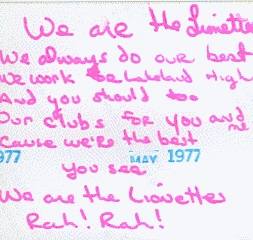 We are the Lionettes
We always do our best
We work for Lakeland High
And you should too
Our clubs for you and me
Cause we're the best
977 MAY 1977
you see
We are the Lionettes
Rah! Rah!